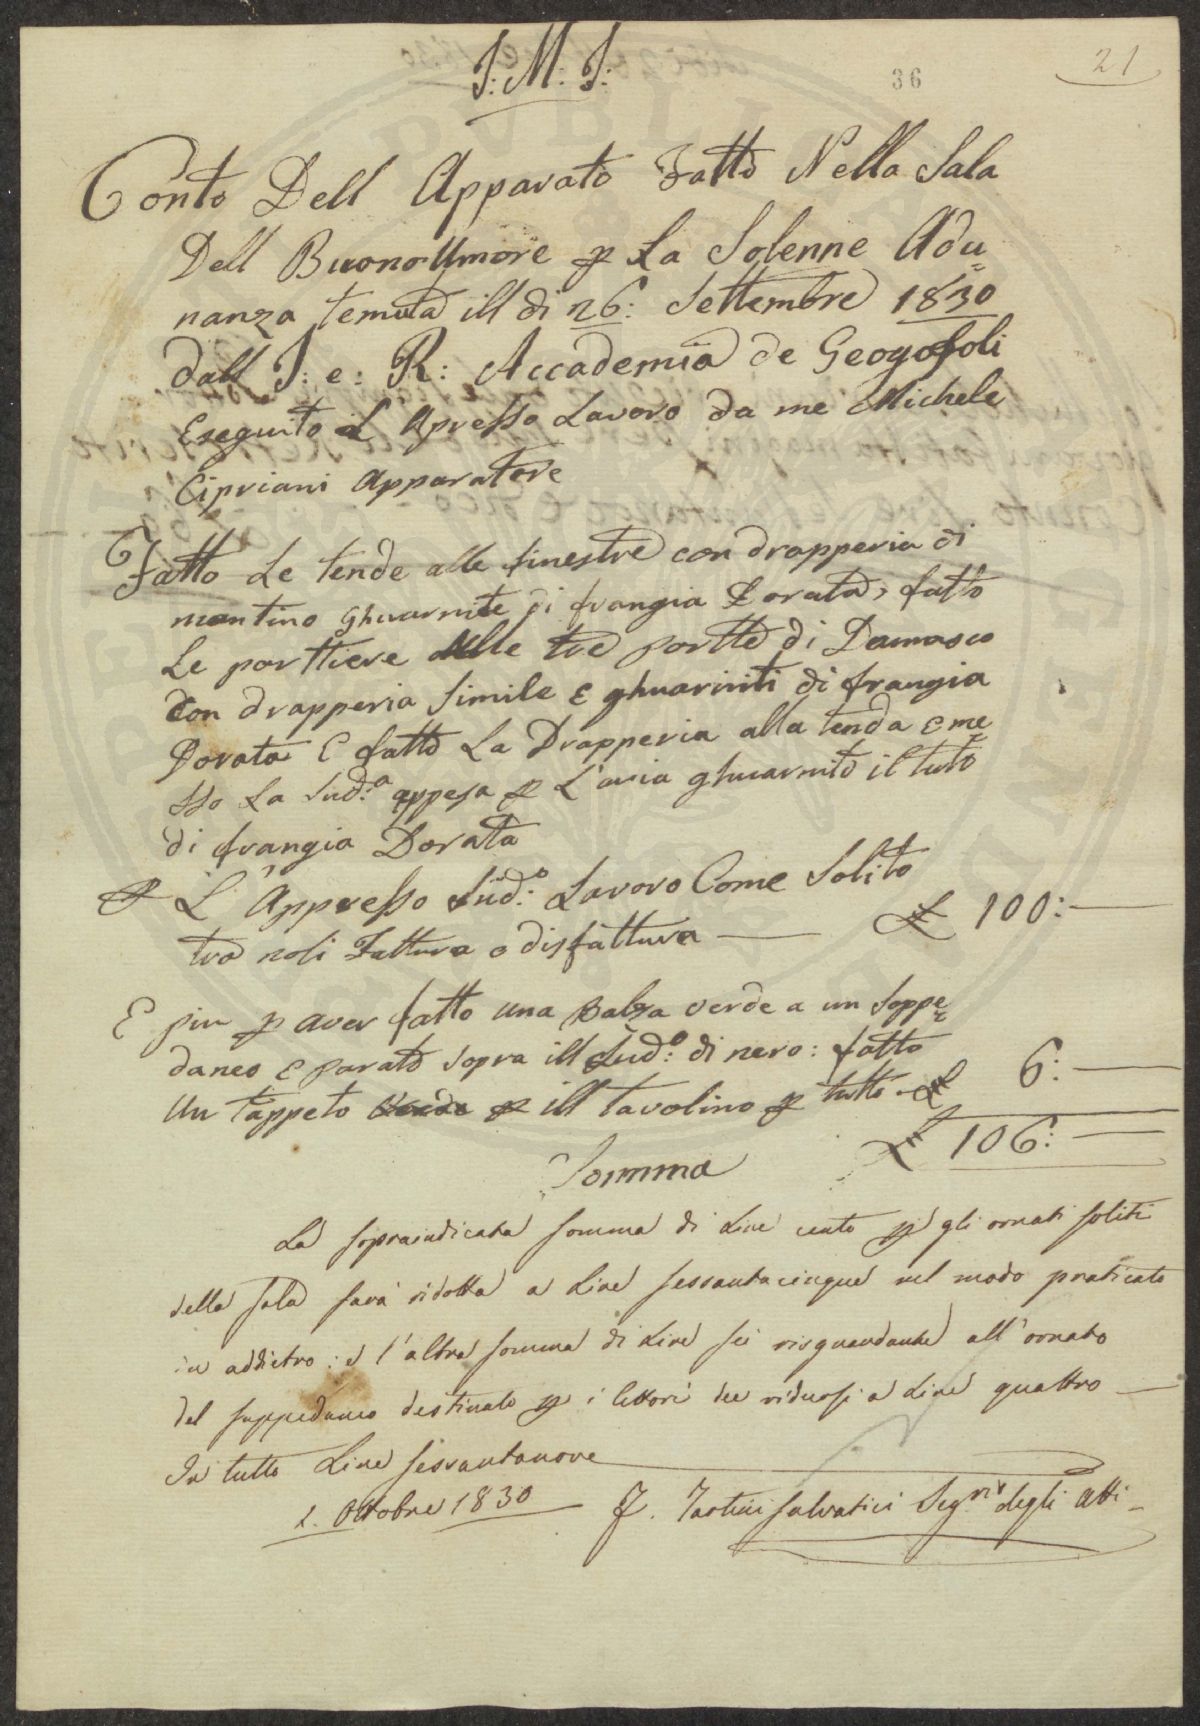 J: M: J:
36
21
Conto Dell Apparato Fatto Nella Sala
Dell Buono Umore p La Solenne Adu=
nanza tenuta ill di 26: Settembre 1830
dall J: e: R: Accademia de Geogofoli
Eseguito L Apresso Lavoro da me Michele
Cipriani Apparatore
Fatto Le tende alle finestre con drapperia di
mantino ghuarnite di frangia Dorata, fatto
Le porttiere alle tre portte di Damasco
Con drapperia Simile e ghuarniti di frangia
Dorata E fatto La Drapperia alla tenda e me=
sso La Sud.a appesa p L'aria ghuarnito il tuto
di frangia Dorata
p L'Appresso Sud.o Lavoro Come Solito
tra noli Fattura e disfattura — £ 100: —
E piu p aver fatto una Balza verde a un Soppe=
daneo e parato sopra ill Sud.o: di nero: fatto
Un tappeto p ill tavolino p tutto £ 6: —
Somma £ 106: —
La sopraindicata somma di Lire cento p gli ornati soliti
della sala sarà ridotta a Lire sessantacinque nel modo praticato
in addietro: e l'altra somma di Lire sei risguardante all'ornato
del suppedaneo destinato p i lettori dee ridursi a Lire quattro —
In tutto Lire sessantanove
1. Ottobre 1830 — F. Tartini Salvatici Seg.rio degli Atti —